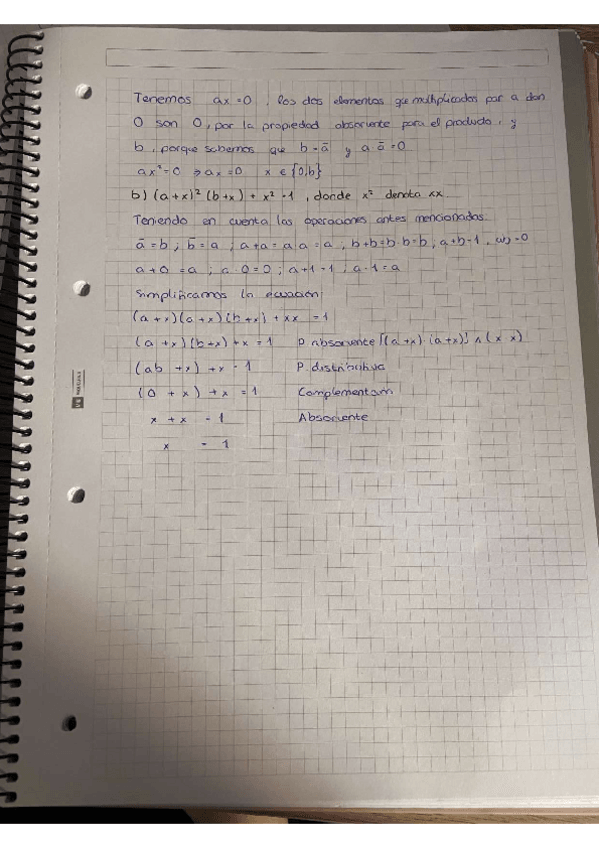 Tenemos ax=0, los dos elementos que multiplicados por a dan
0 son 0, por la propiedad absorvente para el producto, y
b, porque sabemos que b=ā y a ā=0
ax²=0 ⇒ ax=0 x ∈ {0,b}
b) (a+x)² (b+x) + x² = 1, donde x² denota xx
Teniendo en cuenta las operaciones antes mencionadas
ā=b; b̄=a; a+a=a a=a; b+b=b·b=b; a+b=1, ab=0
a+0=a; a·0=0; a+1=1; a·1=a
Simplificamos la ecuación
(a+x)(a+x)(b+x)+xx=1
(a+x)(b+x)+x=1 P absorvente [(a+x)·(a+x)] ∧ (x x)
(ab+x)+x=1 P. distributiva
(0+x)+x=1 Complementam
x+x=1 Absorvente
x=1